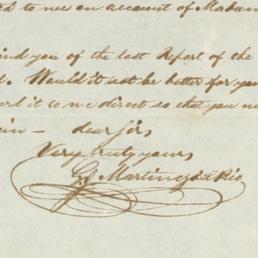 to see on account of Madam
ind you of the last Report of the
d. Would it not be better for you
ord it to me direct so that you
in - dear sir,
Very truly yours
G. Martinez del Rio